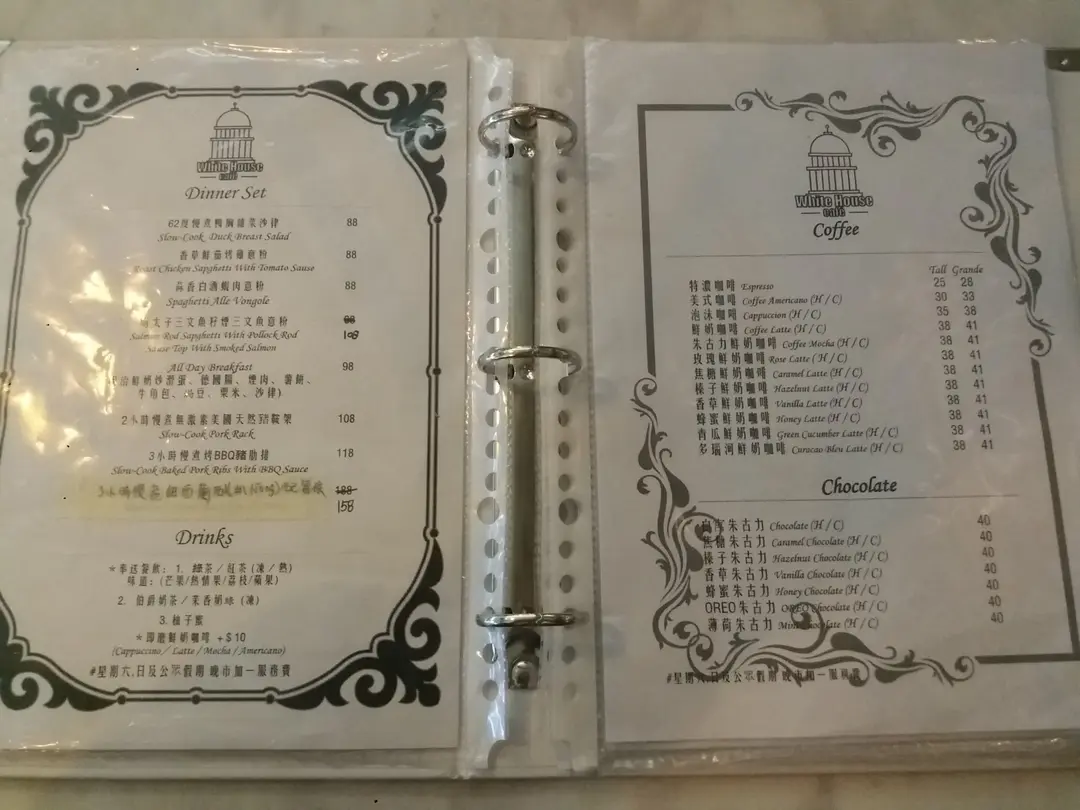 White House
café
Dinner Set
62度慢煮鴨胸雜菜沙律 88
Slow-Cook Duck Breast Salad
香草鮮茄烤雞意粉 88
Roast Chicken Sapghetti With Tomato Sause
蒜香白酒蜆肉意粉 88
Spaghetti Alle Vongole
太子三文魚籽煙三文魚意粉 98
Salmon Rod Sapghetti With Pollock Rod 108
Sause Top With Smoked Salmon
All Day Breakfast 98
鮮奶炒滑蛋、德國腸、煙肉、薯餅、
牛角包、豆、粟米、沙律)
2小時慢煮無激素美國天然豬鞍架 108
Slow-Cook Pork Rack
3小時慢煮烤BBQ豬肋排 118
Slow-Cook Baked Pork Ribs With BBQ Sauce
3小時慢煮紐西蘭 188
158
Drinks
*奉送餐飲: 1. 綠茶/紅茶 (凍/熱)
味道: (芒果/熱情果/荔枝/蘋果)
2. 伯爵奶茶/茉香奶綠 (凍)
3. 柚子蜜
*即磨鮮奶咖啡 +$10
(Cappuccino / Latte / Mocha / Americano)
#星期六,日及公眾假期 晚市加一服務費
White House
café
Coffee
Tall Grande
特濃咖啡 Espresso 25 28
美式咖啡 Coffee Americano (H / C) 30 33
泡沫咖啡 Cappuccion (H / C) 35 38
鮮奶咖啡 Coffee Latte (H / C) 38 41
朱古力鮮奶咖啡 Coffee Mocha (H / C) 38 41
玫瑰鮮奶咖啡 Rose Latte ( H / C) 38 41
焦糖鮮奶咖啡 Caramel Latte (H / C) 38 41
榛子鮮奶咖啡 Hazelnut Latte (H / C) 38 41
香草鮮奶咖啡 Vanilla Latte (H / C) 38 41
蜂蜜鮮奶咖啡 Honey Latte (H / C) 38 41
青瓜鮮奶咖啡 Green Cucumber Latte (H / C) 38 41
多瑙河鮮奶咖啡 Curacao Bleu Latte (H / C) 38 41
Chocolate
朱古力 Chocolate (H / C) 40
焦糖朱古力 Caramel Chocolate (H / C) 40
榛子朱古力 Hazelnut Chocolate (H / C) 40
香草朱古力 Vanilla Chocolate (H / C) 40
蜂蜜朱古力 Honey Chocolate (H / C) 40
OREO朱古力 OREO Chocolate (H / C) 40
薄荷朱古力 Mint Chocolate (H / C) 40
#星期六,日及公眾假期 晚市加一服務費